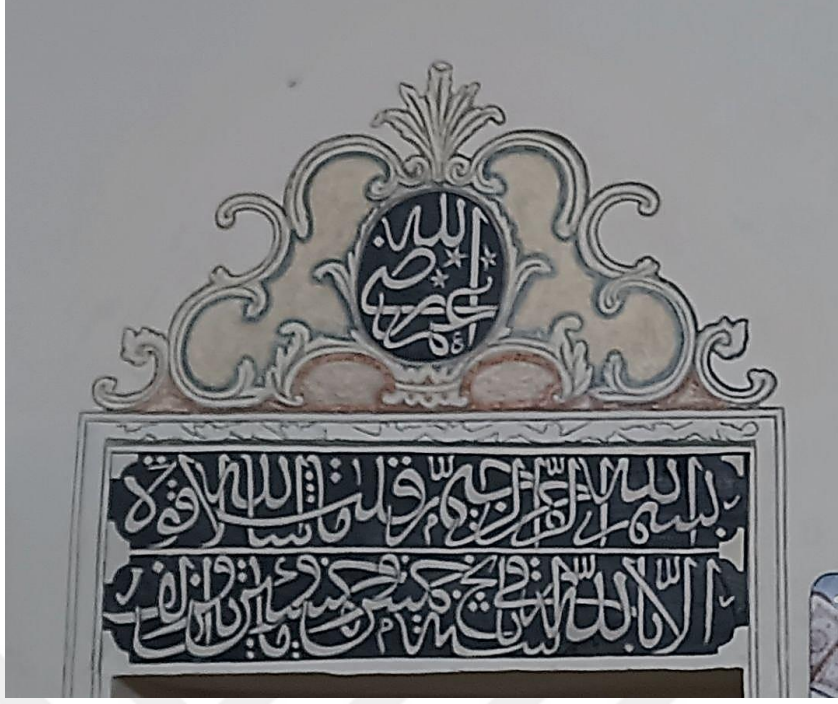 عمر رضى الله
بسم الله الرحمن الرحيم قلت ما شاء الله لا قوة
الا بالله في تاريخ سنة خمس وخمسين ومائتين والف